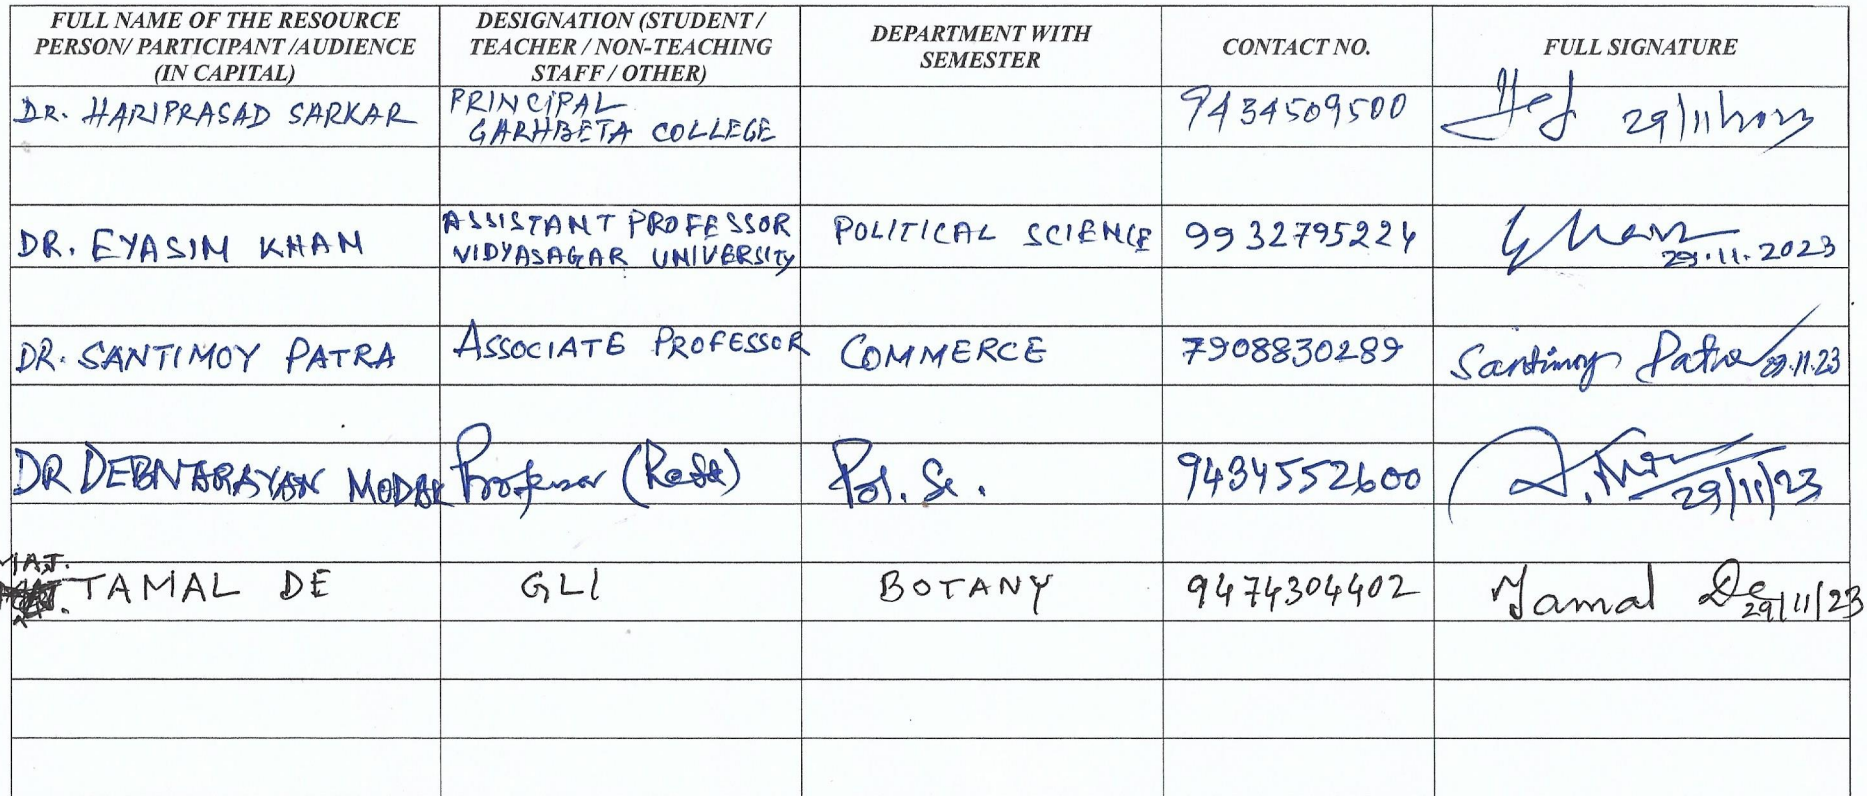 FULL NAME OF THE RESOURCE
PERSON/ PARTICIPANT /AUDIENCE
(IN CAPITAL)
DESIGNATION (STUDENT /
TEACHER / NON-TEACHING
STAFF / OTHER)
DEPARTMENT WITH
SEMESTER
CONTACT NO.
FULL SIGNATURE
DR. HARIPRASAD SARKAR
PRINCIPAL
GARHBETA COLLEGE
9434509500
29/11/2023
DR. EYASIM KHAN
ASSISTANT PROFESSOR
VIDYASAGAR UNIVERSITY
POLITICAL SCIENCE
9932795224
29.11.2023
DR. SANTIMOY PATRA
ASSOCIATE PROFESSOR
COMMERCE
7908830289
Santimoy Patra 29.11.23
DR DEBNARAYAN MODAK
Professor (Retd)
Pol. Sc.
9434552600
29/11/23
MAJ.
TAMAL DE
GLI
BOTANY
9474304402
Tamal De
29/11/23